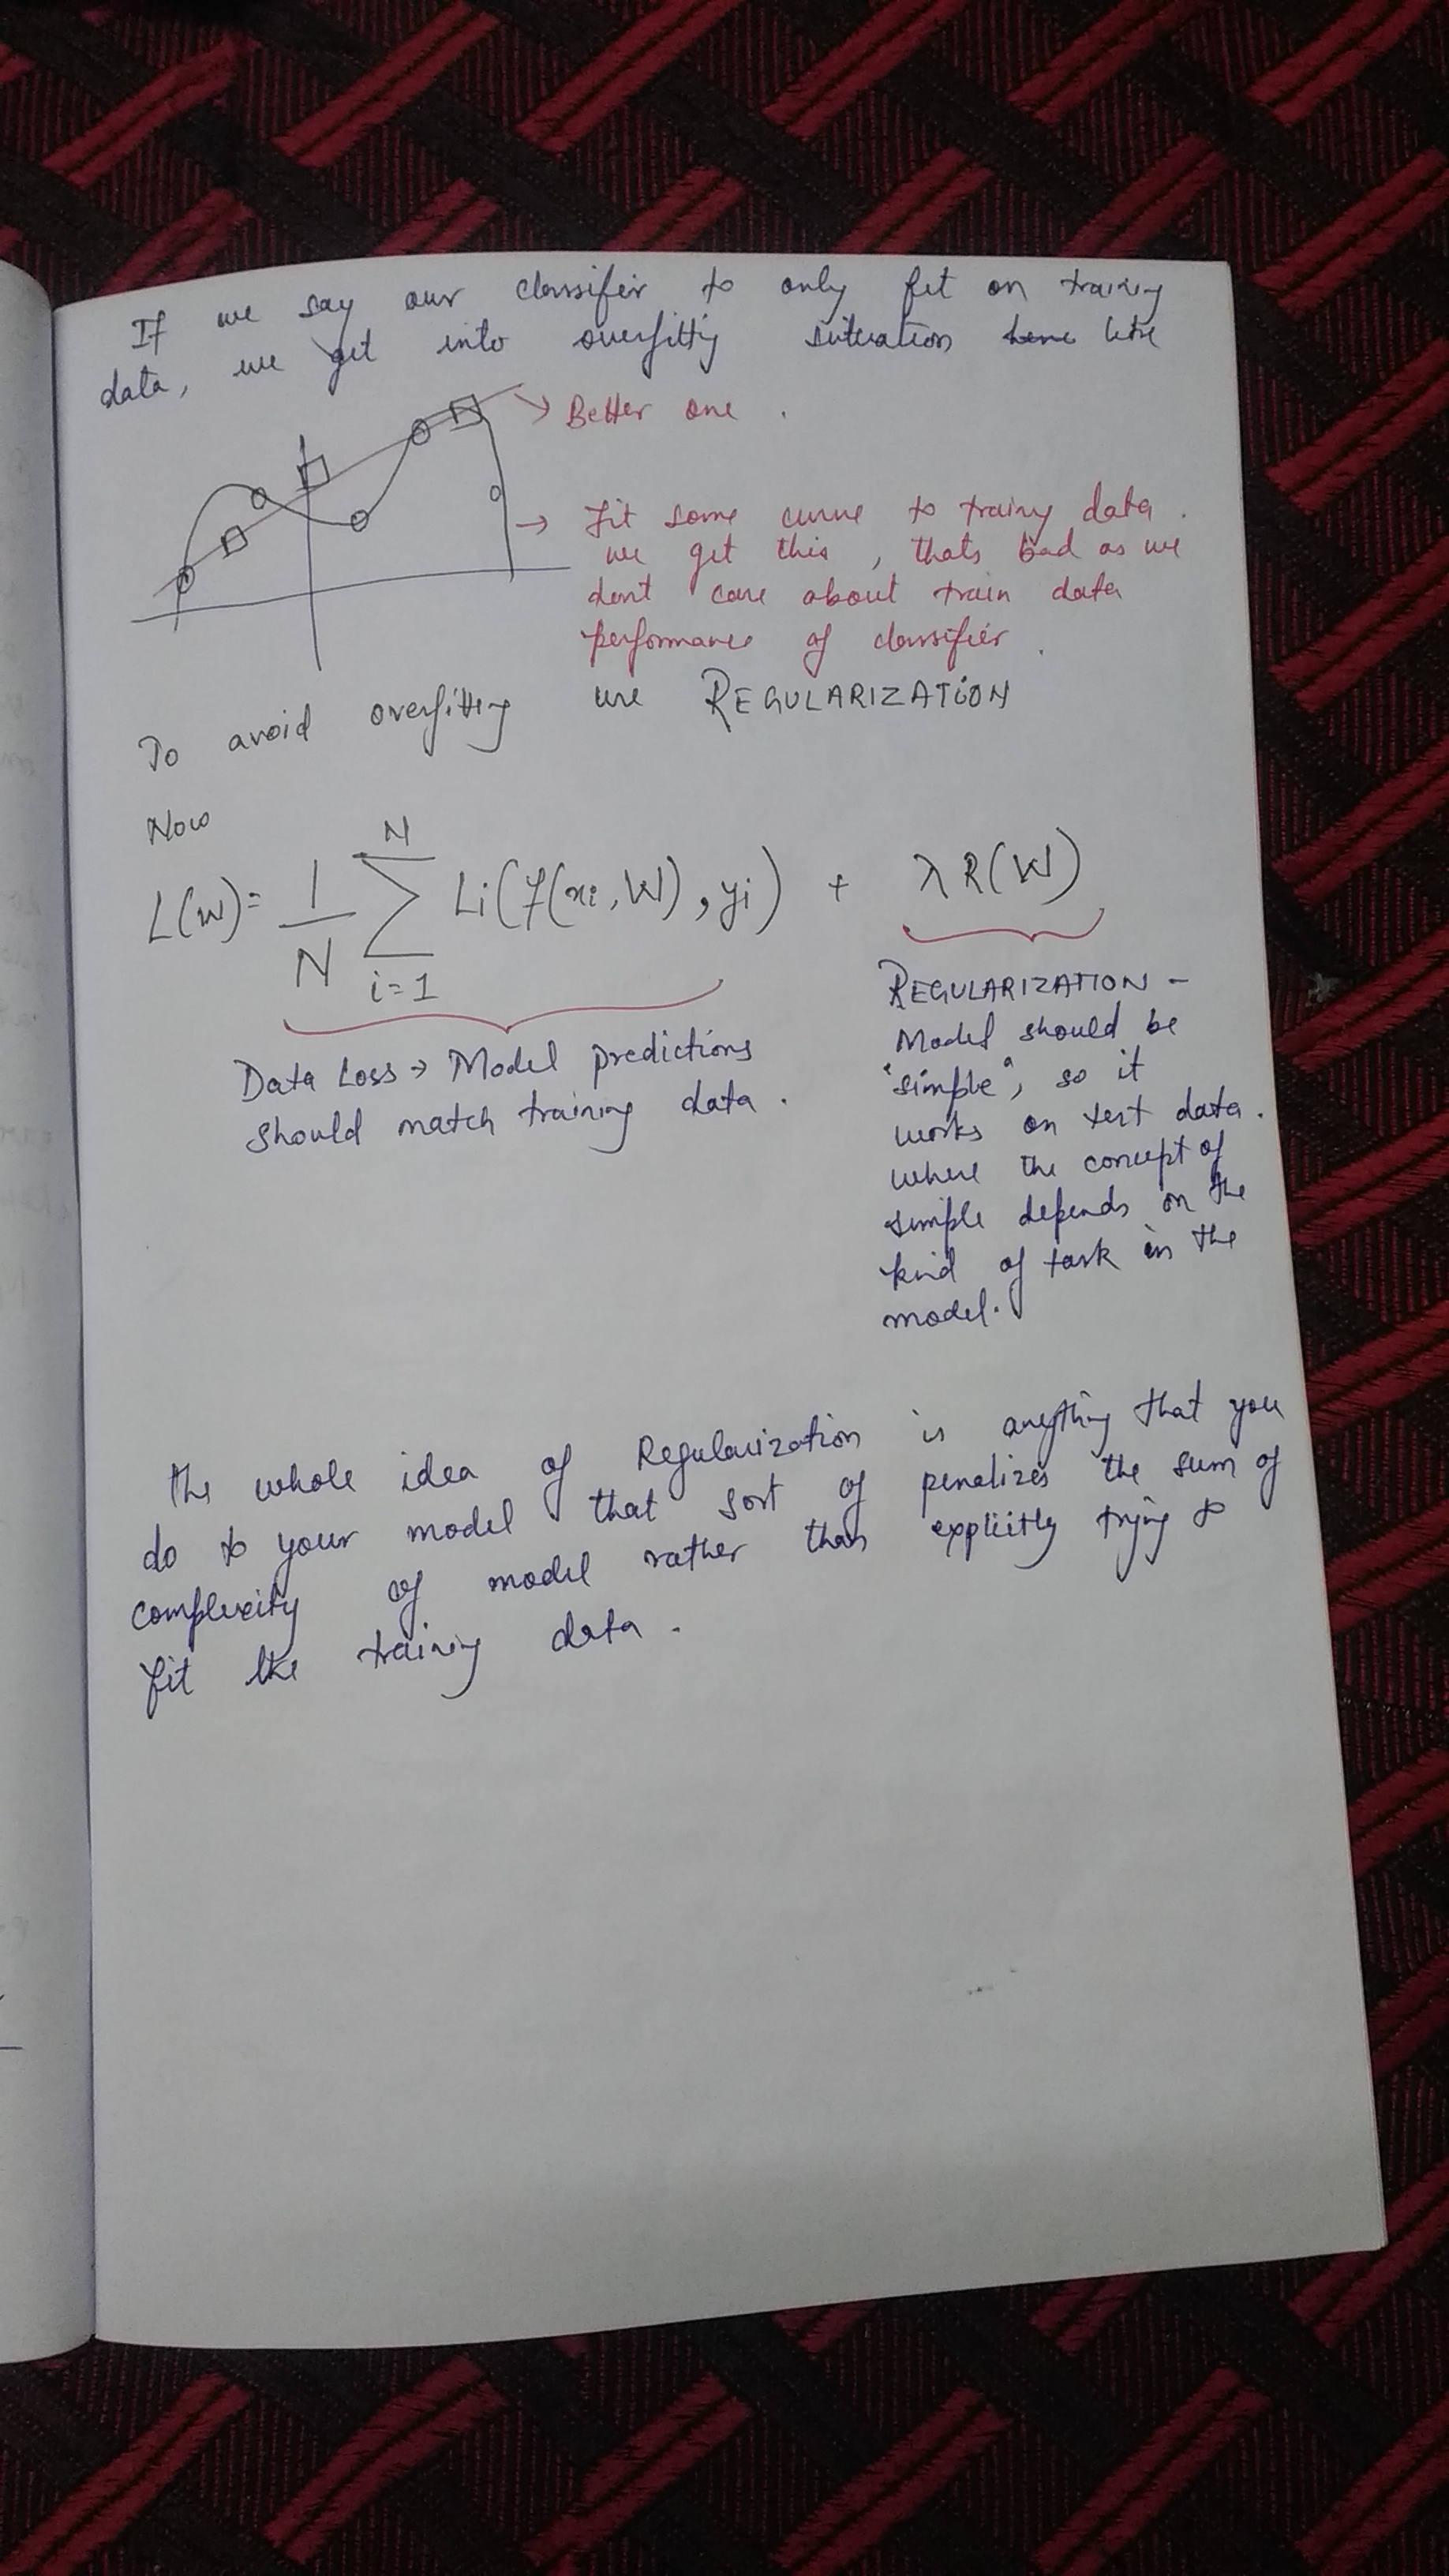 If we say our classifier to only fit on training
data, we get into overfitting situation here like
→ Better one .
→ Fit some curve to training data .
we get this , thats bad as we
dont care about train data
performance of classifier .
To avoid overfitting use REGULARIZATION
Now
L(W) = 1/N ∑ᵢ₌₁ᴺ Li(f(xi, W), yi) + λR(W)
Data Loss → Model predictions
should match training data .
REGULARIZATION -
Model should be
"simple", so it
works on test data .
where the concept of
simple depends on the
kind of task in the
model.
The whole idea of Regularization is anything that you
do to your model that sort of penalizes the sum of
complexity of model rather than explicitly trying to
fit the training data .